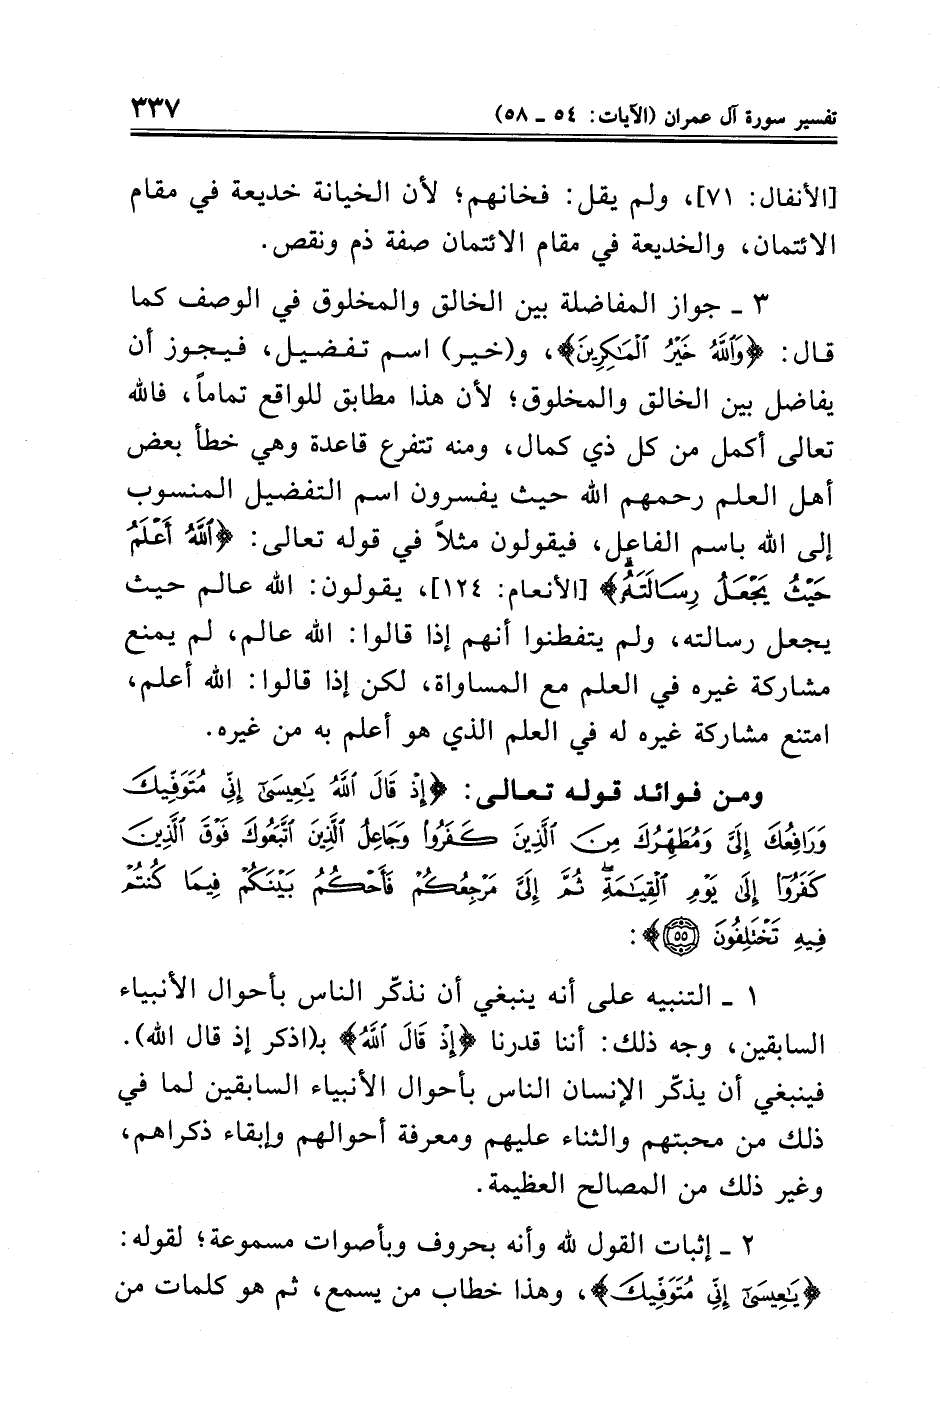 تفسير سورة آل عمران (الآيات: ٥٤ ـ ٥٨) ٣٣٧
[الأنفال: ٧١]، ولم يقل: فخانهم؛ لأن الخيانة خديعة في مقام
الائتمان، والخديعة في مقام الائتمان صفة ذم ونقص.
٣ ـ جواز المفاضلة بين الخالق والمخلوق في الوصف كما
قال: ﴿وَٱللَّهُ خَيْرُ ٱلْمَٰكِرِينَ﴾، و(خير) اسم تفضيل، فيجوز أن
يفاضل بين الخالق والمخلوق؛ لأن هذا مطابق للواقع تماماً، فالله
تعالى أكمل من كل ذي كمال، ومنه تتفرع قاعدة وهي خطأ بعض
أهل العلم رحمهم الله حيث يفسرون اسم التفضيل المنسوب
إلى الله باسم الفاعل، فيقولون مثلاً في قوله تعالى: ﴿ٱللَّهُ أَعْلَمُ
حَيْثُ يَجْعَلُ رِسَالَتَهُۥ﴾ [الأنعام: ١٢٤]، يقولون: الله عالم حيث
يجعل رسالته، ولم يتفطنوا أنهم إذا قالوا: الله عالم، لم يمنع
مشاركة غيره في العلم مع المساواة، لكن إذا قالوا: الله أعلم،
امتنع مشاركة غيره له في العلم الذي هو أعلم به من غيره.
ومن فوائد قوله تعالى: ﴿إِذْ قَالَ ٱللَّهُ يَٰعِيسَىٰٓ إِنِّى مُتَوَفِّيكَ
وَرَافِعُكَ إِلَىَّ وَمُطَهِّرُكَ مِنَ ٱلَّذِينَ كَفَرُوا۟ وَجَاعِلُ ٱلَّذِينَ ٱتَّبَعُوكَ فَوْقَ ٱلَّذِينَ
كَفَرُوٓا۟ إِلَىٰ يَوْمِ ٱلْقِيَٰمَةِ ۖ ثُمَّ إِلَىَّ مَرْجِعُكُمْ فَأَحْكُمُ بَيْنَكُمْ فِيمَا كُنتُمْ
فِيهِ تَخْتَلِفُونَ ٥٥﴾:
١ ـ التنبيه على أنه ينبغي أن نذكّر الناس بأحوال الأنبياء
السابقين، وجه ذلك: أننا قدرنا ﴿إِذْ قَالَ ٱللَّهُ﴾ بـ(اذكر إذ قال الله).
فينبغي أن يذكّر الإنسان الناس بأحوال الأنبياء السابقين لما في
ذلك من محبتهم والثناء عليهم ومعرفة أحوالهم وإبقاء ذكراهم،
وغير ذلك من المصالح العظيمة.
٢ ـ إثبات القول لله وأنه بحروف وبأصوات مسموعة؛ لقوله:
﴿يَٰعِيسَىٰٓ إِنِّى مُتَوَفِّيكَ﴾، وهذا خطاب من يسمع، ثم هو كلمات من